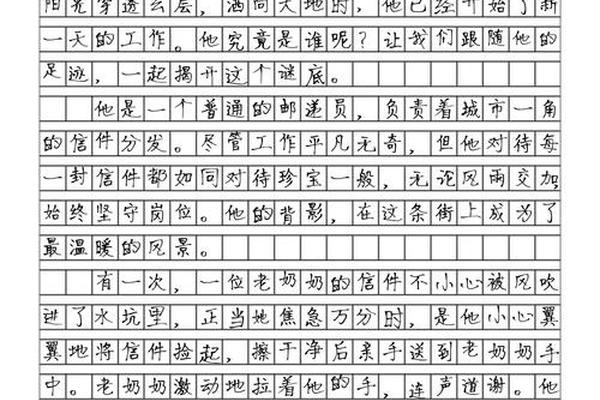 阳光穿透云层，洒向大地时，他已经开始了新
一天的工作。他究竟是谁呢？让我们跟随他的
足迹，一起揭开这个谜底。
他是一个普通的邮递员，负责着城市一角
的信件分发。尽管工作平凡无奇，但他对待每
一封信件都如同对待珍宝一般，无论风雨交加，
始终坚守岗位。他的背影，在这条街上成为了
最温暖的风景。
有一次，一位老奶奶的信件不小心被风吹
进了水坑里，正当她焦急万分时，是他小心翼
翼地将信件捡起，擦干净后亲手送到老奶奶手
中。老奶奶激动地拉着他的手，连声道谢。他